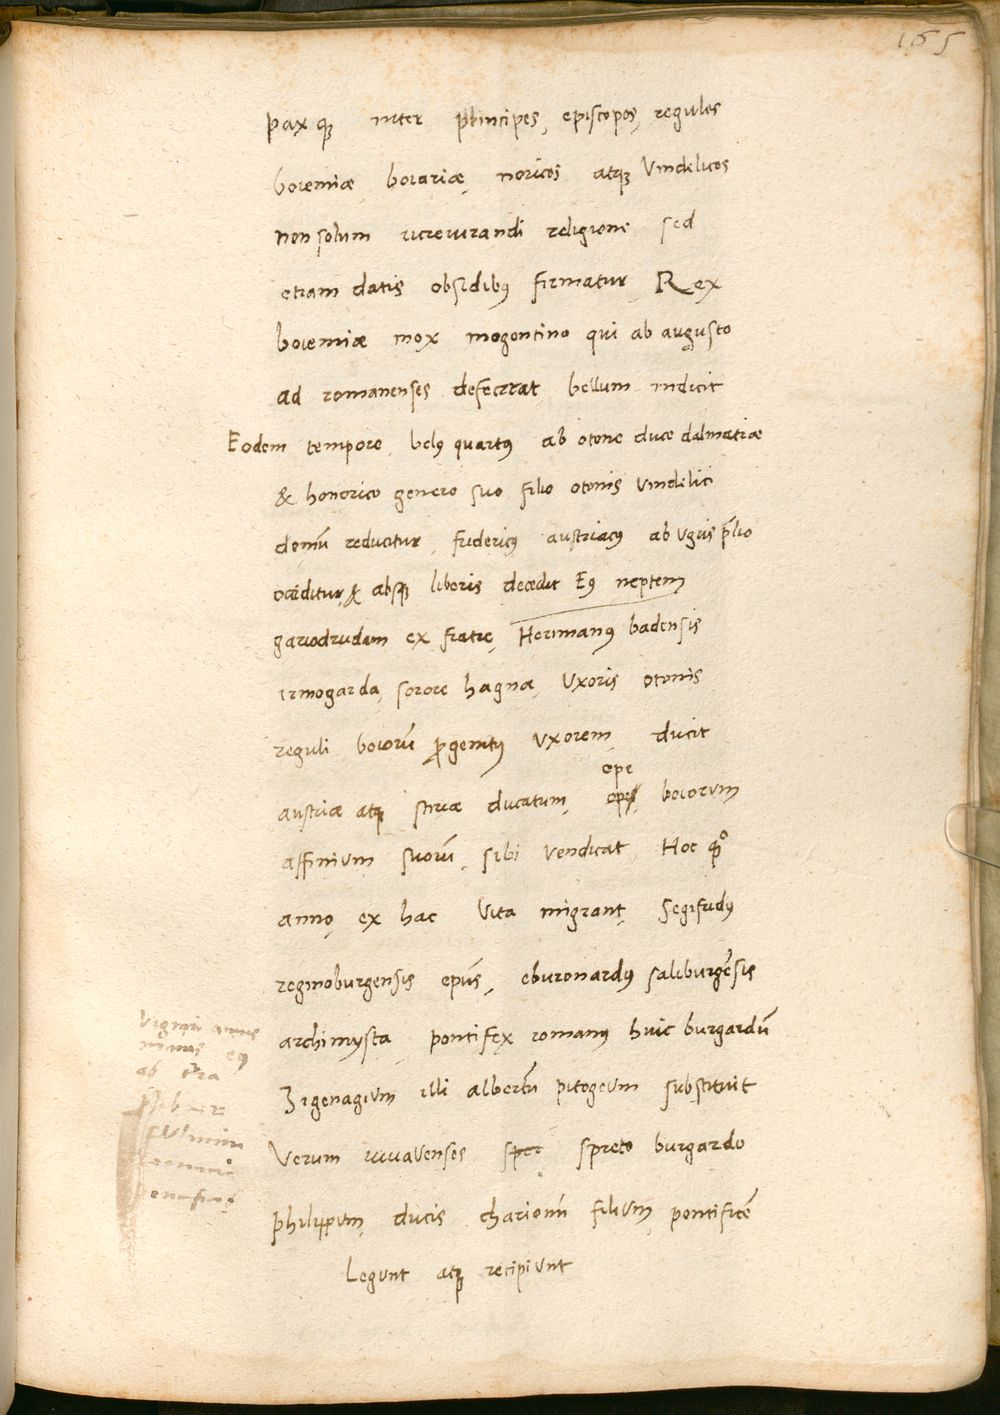 165
pax qꝫ inter principes, episcopos, regulos
boiemiæ boiariæ, noricos atqꝫ Vindelicos
non solum iureiurandi religione sed
etiam datis obsidibꝰ firmatur Rex
boiemiæ mox mogontino qui ab augusto
ad romanenses defecerat bellum indicit
Eodem tempore belꝰ quartꝰ ab otone duce dalmatiæ
& honorico genero suo filio otonis vindelici
domū reducitur, fridericꝰ austriacꝰ ab vgris p̄lio
occiditur, & absqꝫ liberis decedit Eꝰ neptem
garicdrudam ex fratre, Herimanꝰ badensis
irmogarda, sorore hagnæ, Vxoris otonis
reguli boiorū ꝓgenitꝰ vxorem, ducit
ope
austriæ atqꝫ stiriæ ducatum, opes boiorum
affinium suorū, sibi vendicat, Hoc qꝫ
anno, ex hac Vita migrant, Segifridꝰ
reginoburgensis ep̄us, eburonardꝰ saliburgēsis
archimysta, pontifex romanꝰ huic burgardū
Zigenagium illi albertū pitogeum substituit
Verum iuuauenses sper spreto burgardo
philippum, ducis charionū filium, pontificē
Legunt atqꝫ recipiunt